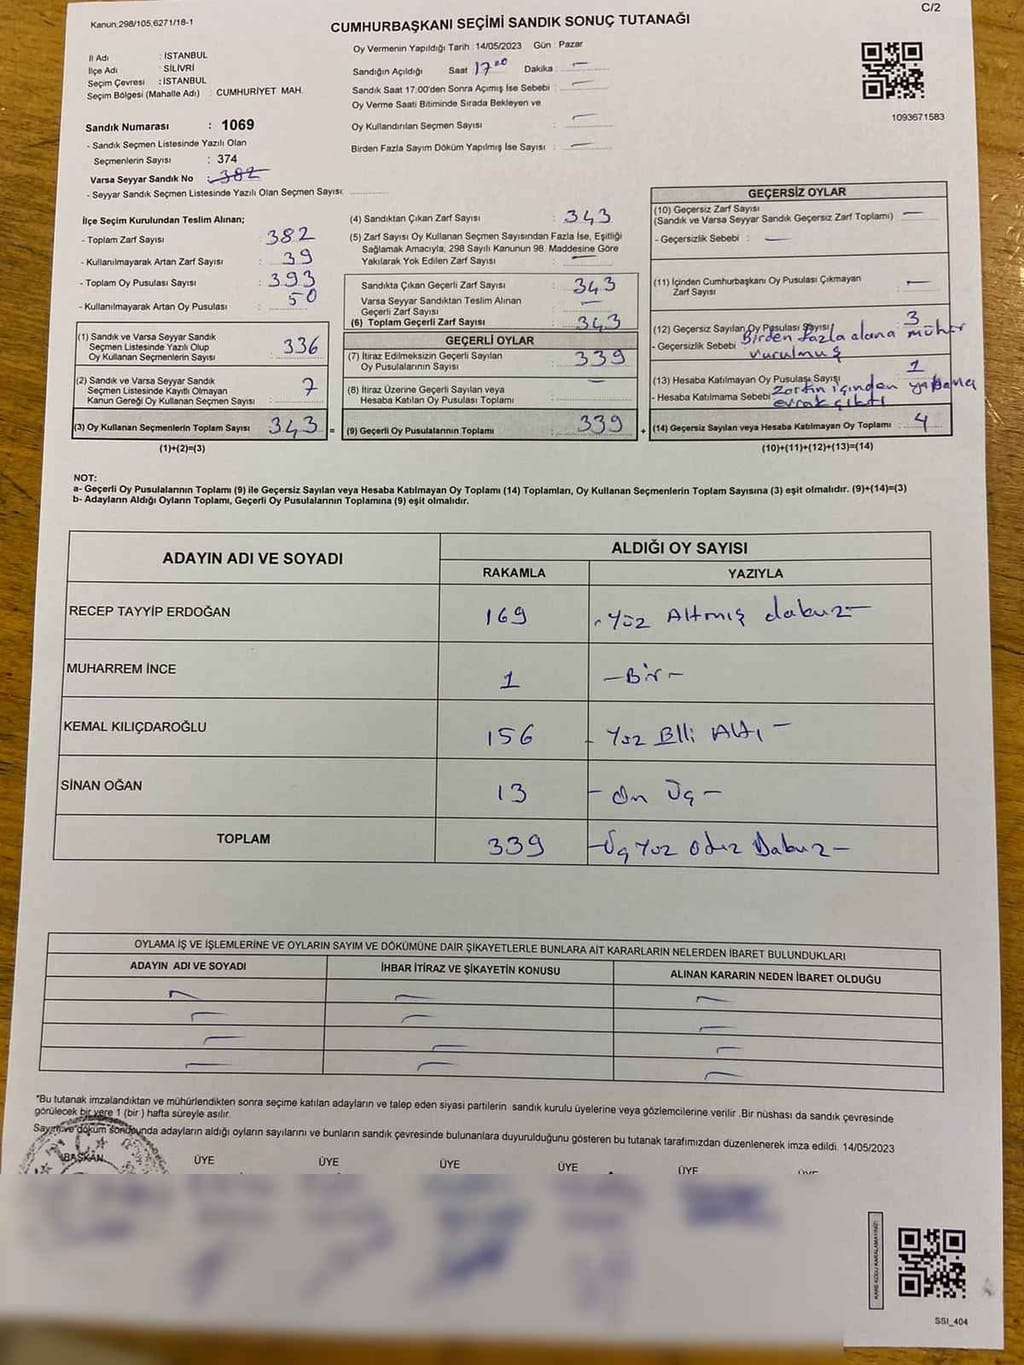 Kanun:298/105,6271/18-1
C/2
CUMHURBAŞKANI SEÇİMİ SANDIK SONUÇ TUTANAĞI
İl Adı : İSTANBUL
İlçe Adı : SİLİVRİ
Seçim Çevresi : İSTANBUL
Seçim Bölgesi (Mahalle Adı) : CUMHURİYET MAH.
Sandık Numarası : 1069
- Sandık Seçmen Listesinde Yazılı Olan
Seçmenlerin Sayısı : 374
Varsa Seyyar Sandık No : 382
- Seyyar Sandık Seçmen Listesinde Yazılı Olan Seçmen Sayısı:
Oy Vermenin Yapıldığı Tarih : 14/05/2023 Gün : Pazar
Sandığın Açıldığı Saat 17 00 Dakika : —
Sandık Saat 17:00'den Sonra Açımış İse Sebebi : —
Oy Verme Saati Bitiminde Sırada Bekleyen ve
Oy Kullandırılan Seçmen Sayısı : —
Birden Fazla Sayım Döküm Yapılmış İse Sayısı : —
1093671583
İlçe Seçim Kurulundan Teslim Alınan;
- Toplam Zarf Sayısı : 382
- Kullanılmayarak Artan Zarf Sayısı : 39
- Toplam Oy Pusulası Sayısı : 393
- Kullanılmayarak Artan Oy Pusulası : 50
(1) Sandık ve Varsa Seyyar Sandık
Seçmen Listesinde Yazılı Olup
Oy Kullanan Seçmenlerin Sayısı : 336
(2) Sandık ve Varsa Seyyar Sandık
Seçmen Listesinde Kayıtlı Olmayan
Kanun Gereği Oy Kullanan Seçmen Sayısı : 7
(3) Oy Kullanan Seçmenlerin Toplam Sayısı : 343
(1)+(2)=(3)
(4) Sandıktan Çıkan Zarf Sayısı : 343
(5) Zarf Sayısı Oy Kullanan Seçmen Sayısından Fazla İse, Eşitliği
Sağlamak Amacıyla, 298 Sayılı Kanunun 98. Maddesine Göre
Yakılarak Yok Edilen Zarf Sayısı : —
Sandıkta Çıkan Geçerli Zarf Sayısı : 343
Varsa Seyyar Sandıktan Teslim Alınan
Geçerli Zarf Sayısı : —
(6) Toplam Geçerli Zarf Sayısı : 343
GEÇERLİ OYLAR
(7) İtiraz Edilmeksizin Geçerli Sayılan
Oy Pusulasının Sayısı : 339
(8) İtiraz Üzerine Geçerli Sayılan veya
Hesaba Katılan Oy Pusulası Toplamı : —
= (9) Geçerli Oy Pusulalarının Toplamı : 339
GEÇERSİZ OYLAR
(10) Geçersiz Zarf Sayısı : —
(Sandık ve Varsa Seyyar Sandık Geçersiz Zarf Toplamı)
- Geçersizlik Sebebi : —
(11) İçinden Cumhurbaşkanı Oy Pusulası Çıkmayan
Zarf Sayısı : —
(12) Geçersiz Sayılan Oy Pusulası Sayısı 3
- Geçersizlik Sebebi Birden fazla alana mühür
vurulmuş
(13) Hesaba Katılmayan Oy Pusulası Sayısı 1
- Hesaba Katılmama Sebebi Zarfın içinden yabancı
evrak çıktı
+ (14) Geçersiz Sayılan veya Hesaba Katılmayan Oy Toplamı : 4
(10)+(11)+(12)+(13)=(14)
NOT:
a- Geçerli Oy Pusulalarının Toplamı (9) ile Geçersiz Sayılan veya Hesaba Katılmayan Oy Toplamı (14) Toplamları, Oy Kullanan Seçmenlerin Toplam Sayısına (3) eşit olmalıdır. (9)+(14)=(3)
b- Adayların Aldığı Oyların Toplamı, Geçerli Oy Pusulalarının Toplamına (9) eşit olmalıdır.
ADAYIN ADI VE SOYADI ALDIĞI OY SAYISI
RAKAMLA YAZIYLA
RECEP TAYYİP ERDOĞAN 169 - Yüz Altmış dokuz -
MUHARREM İNCE 1 - Bir -
KEMAL KILIÇDAROĞLU 156 - Yüz Elli Altı -
SİNAN OĞAN 13 - On Üç -
TOPLAM 339 - Üç Yüz Otuz Dokuz -
OYLAMA İŞ VE İŞLEMLERİNE VE OYLARIN SAYIM VE DÖKÜMÜNE DAİR ŞİKAYETLERLE BUNLARA AİT KARARLARIN NELERDEN İBARET BULUNDUKLARI
ADAYIN ADI VE SOYADI İHBAR İTİRAZ VE ŞİKAYETİN KONUSU ALINAN KARARIN NEDEN İBARET OLDUĞU
"Bu tutanak imzalandıktan ve mühürlendikten sonra seçime katılan adayların ve talep eden siyasi partilerin sandık kurulu üyelerine veya gözlemcilerine verilir .Bir nüshası da sandık çevresinde
görülecek bir yere 1 (bir ) hafta süreyle asılır.
Sayım ve döküm sonucunda adayların aldığı oyların sayılarını ve bunların sandık çevresinde bulunanlara duyurulduğunu gösteren bu tutanak tarafımızdan düzenlenerek imza edildi. 14/05/2023
BAŞKAN ÜYE ÜYE ÜYE ÜYE ÜYE ÜYE
KARE KODU KARALAMAYINIZ!
SSI_404